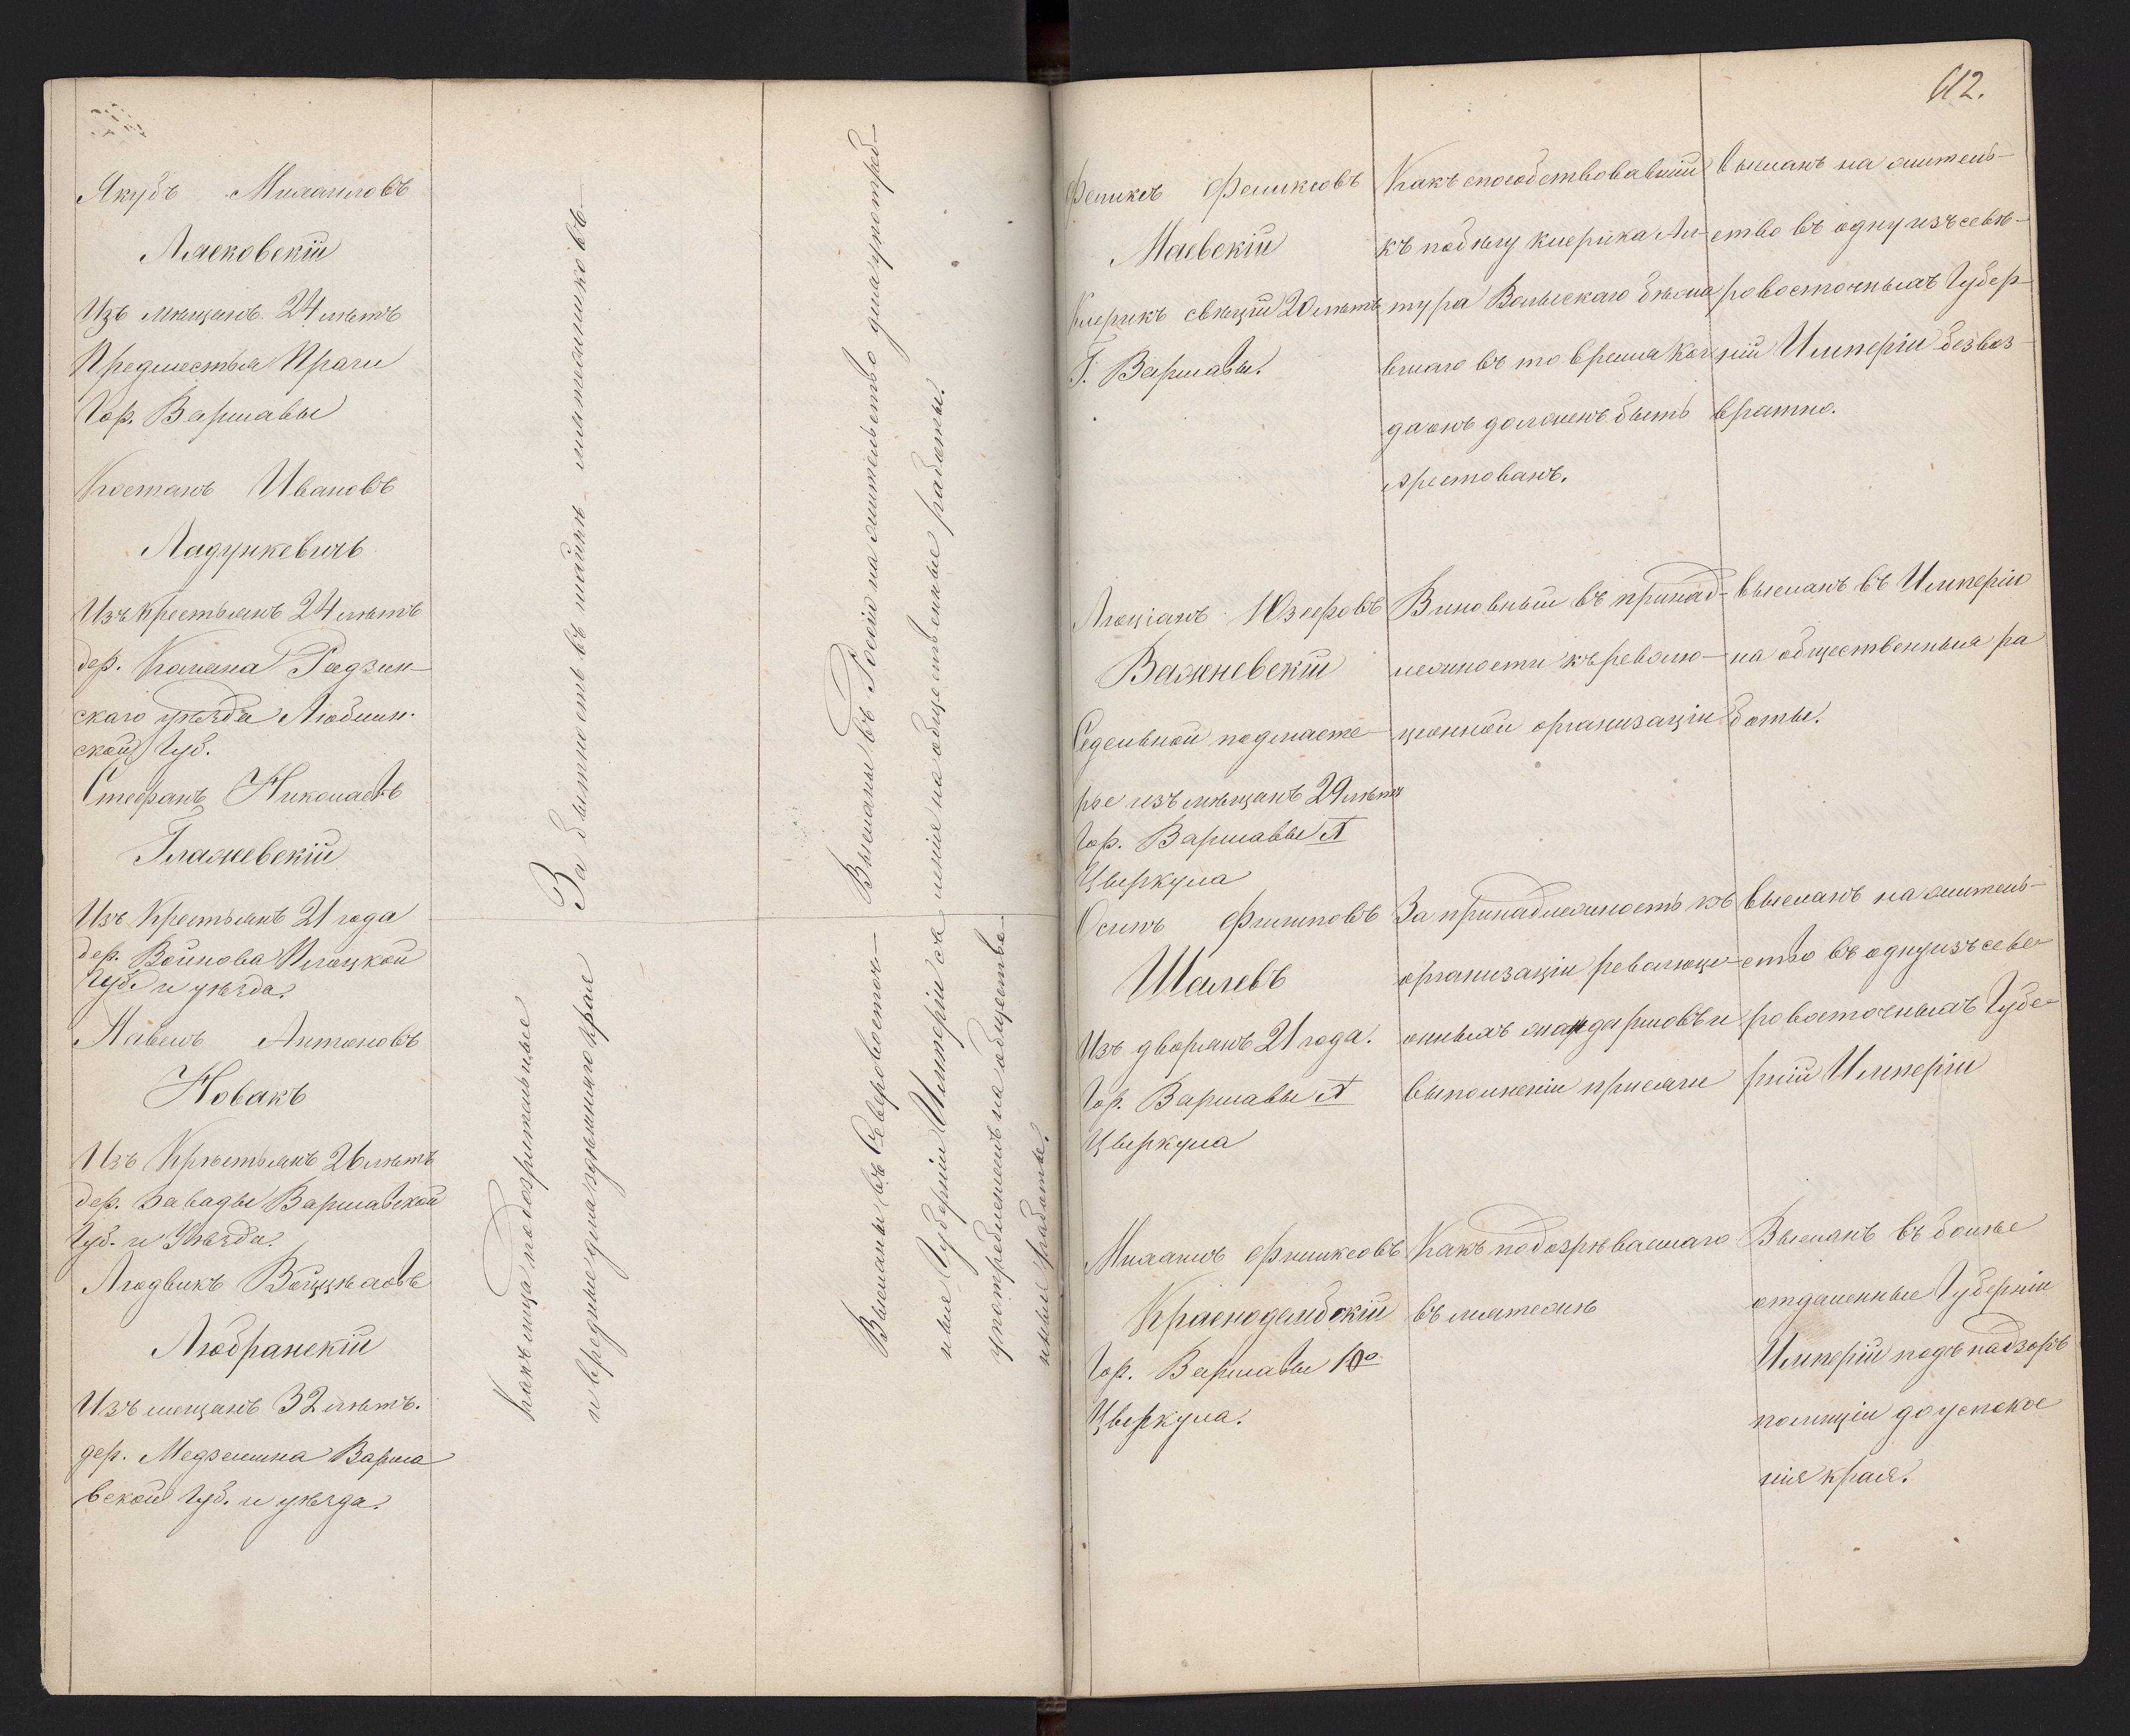 Якубъ Михаиловъ
Лясковскій
Изъ мѣщанъ 24 лѣтъ
Предместья Праги
Гор. Варшавы
Костанъ Ивановъ
Ладункевичъ
Изъ крестьянъ 24 лѣтъ
дер. Коляна Радзин-
скаго уѣзда Люблин-
ской Губ.
Стефанъ Николаевъ
Глажевскій
Изъ Крестьянъ 21 года
дер. Войнова Плоцкой
Губ. и уѣзда.
Павелъ Антоновъ
Новакъ
Изъ Крестьянъ 26 лѣтъ
дер. Завады Варшавской
Губ. и Уѣзда.
Людвикъ
Любранскій
Изъ мещанъ 32 лѣтъ.
дер. Медзешина Варша
вской Губ. и уѣзда.
За бытность въ шайкѣ мятежниковъ
какъ лица подозрительные
и вредные для здѣшняго края
Высланы въ Россію на жительство для употреб-
ленія на общественные работы.
Высланы въ Северовосточ-
ные Губерніи Имперіи съ
употребленіемъ на обществе-
нные работы.
612.
Феликсъ Феликсовъ
Маевскій
Клерикъ свецкій 20 лѣтъ
Г. Варшавы.
Какъ способствовавшій
къ побѣгу клерика Ар-
тура Вольскаго бѣжа
вшаго въ то время ког
да онъ долженъ быть
арестованъ.
высланъ на житель-
ство въ одну изъ севѣ-
ровосточныхъ Губер-
ній Имперіи безвоз-
вратно.
Люціанъ Юзефовъ
Важневскій
Седельной подмасте-
рье изъ мѣщанъ 29 лѣтъ
Гор. Варшавы X
Цыркула
Виновный въ принад-
лежности къ револю-
ціонной организаціи
высланъ въ Имперію
на общественныя ра
боты.
Осипъ Филиповъ
Шалевъ
Изъ дворянъ 21 года.
Гор. Варшавы X
Цыркула
За принадлежность къ
организаціи революці-
онныхъ жандармовъ и
выполненіи присяги
высланъ на житель-
ство въ одну изъ севе-
ровосточныхъ Губе-
рній Имперіи
Михаилъ Феликсовъ
Краснодембскій
Гор. Варшавы 10º
Цыркула.
Какъ подозрѣваемаго
въ мятежѣ
Высланъ въ болѣе
отдаленные Губерніи
Имперіи подъ надзоръ
полиціи до успокое
нія края.